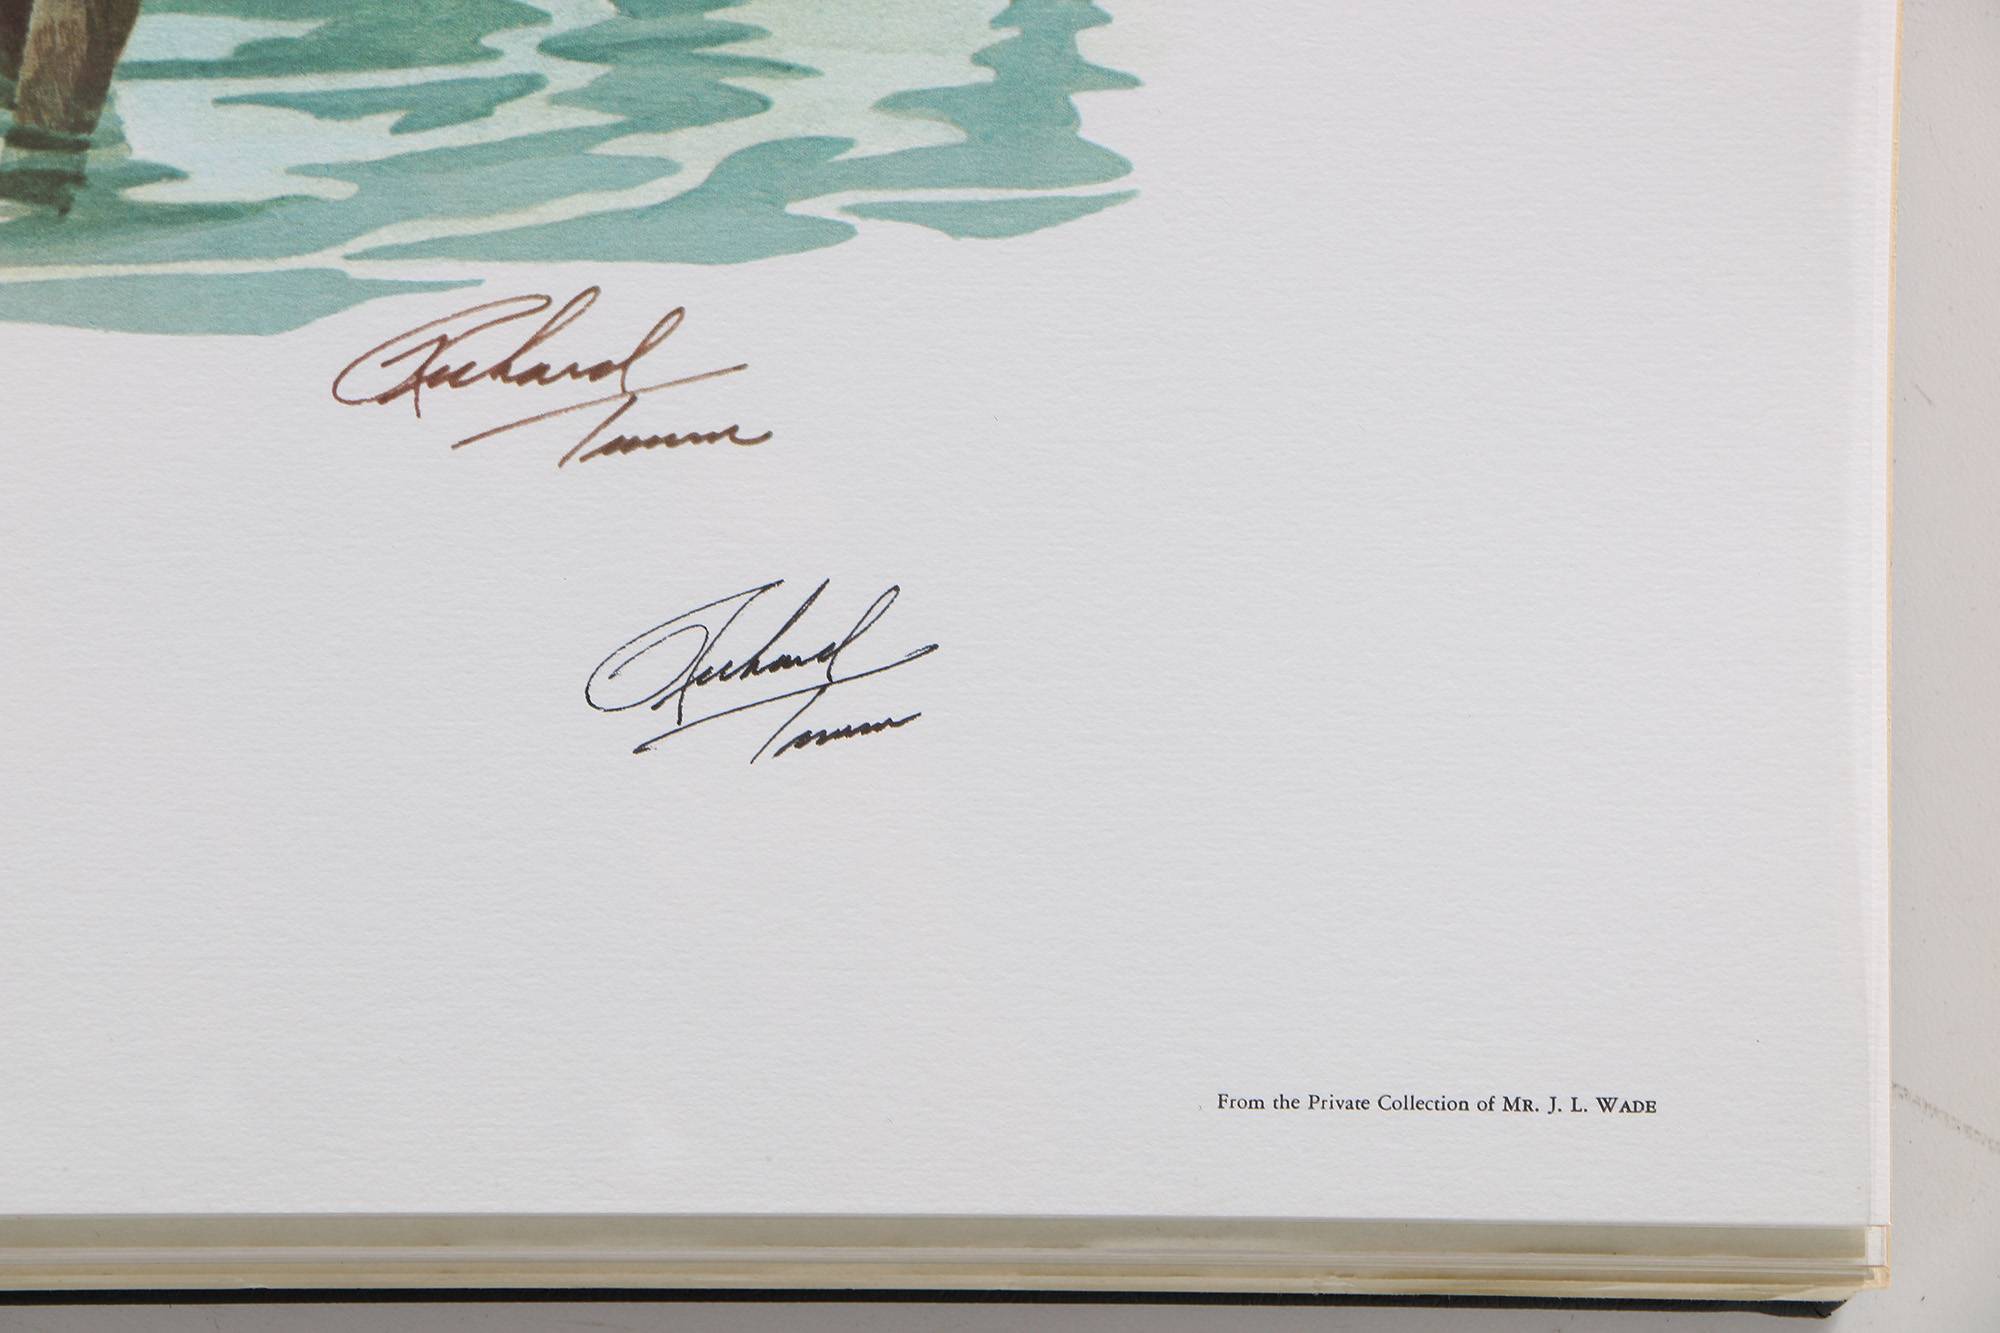 Richard
Timm
Richard
Timm
From the Private Collection of MR. J. L. WADE